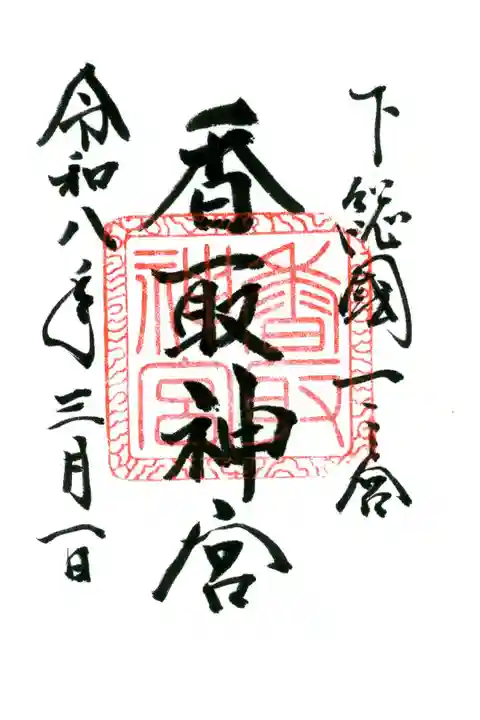 下總國一之宮
香取神宮
令和八年三月一日
香取
神宮